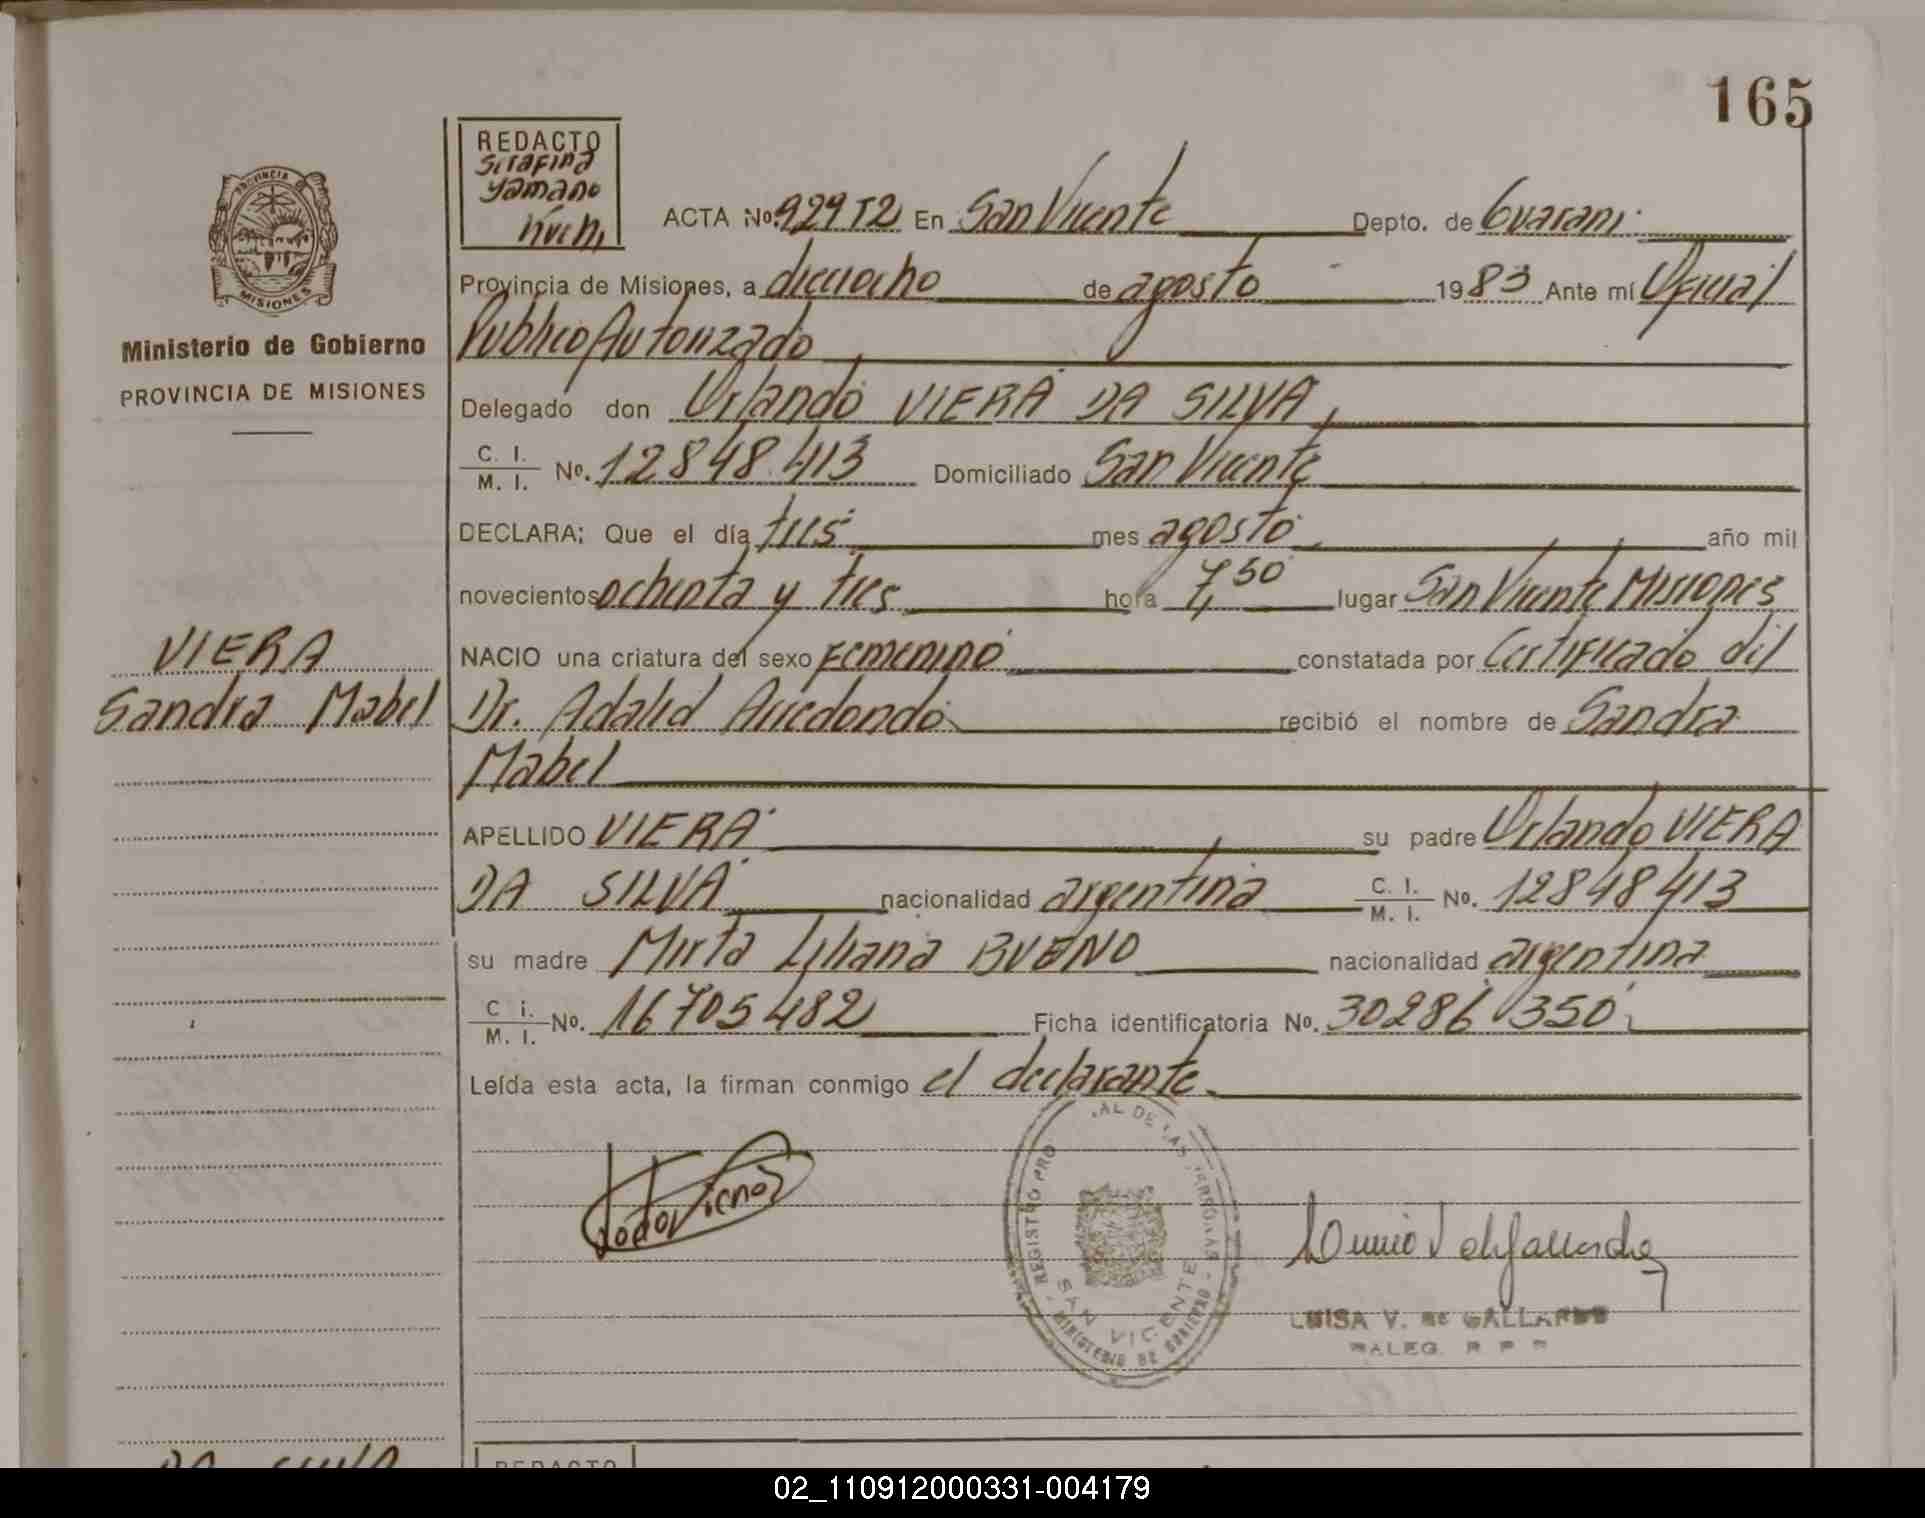 165
REDACTO
Serafina
Yamano
Kuchi
PROVINCIA DE
MISIONES
Ministerio de Gobierno
PROVINCIA DE MISIONES
ACTA No. 929 T2 En San Vicente Depto. de Guarani
Provincia de Misiones, a dieciocho de agosto 1983 Ante mí Oficial
Publico Autorizado
Delegado don Orlando VIERA DA SILVA,
C. I. / M. I. No. 12848.413 Domiciliado San Vicente
DECLARA; Que el día tres mes agosto año mil
novecientos ochenta y tres hora 7,50 lugar San Vicente Misiones
NACIO una criatura del sexo Femenino constatada por Certificado del
VIERA
Sandra Mabel
Dr. Adalid Arredondo recibió el nombre de Sandra
Mabel
APELLIDO VIERA su padre Orlando VIERA
DA SILVA nacionalidad argentina C. I. / M. I. No. 12848413
su madre Mirta Liliana BUENO nacionalidad argentina
C i. / M. I. No. 16705482 Ficha identificatoria No. 30286350
Leída esta acta, la firman conmigo el declarante
REGISTRO PRO AL DE LAS PERSONAS
SAN VICENTE
MINISTERIO DE GOBIERNO
LUISA V. DE GALLARDO
DALEG. R P P
DA SILVA
REDACTO
02_110912000331-004179